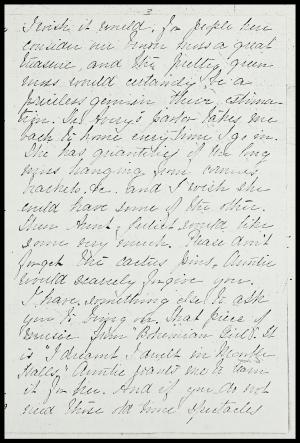 3
I wish it would. for people here
consider our brown moss a great
treasure, and the pretty green
moss would certainly be a
priceless gem in their estima-
tion. Dr. Avery's parlor takes me
back to home every time I go in.
She has quantities of the long
moss hanging from corners,
brackets, &c. and I wish she
could have some of the other.
Then Aunt Juliet would like
some very much. Please don't
forget the cactus pins, Auntie
would scarcely forgive you.
I have something else to ask
you to bring on. That piece of
music from "Bohemian Girl". It
is "I dreamt I dwelt in Marble
Halls" Auntie wants me to learn
it for her. And if you do not
need those old time spectacles